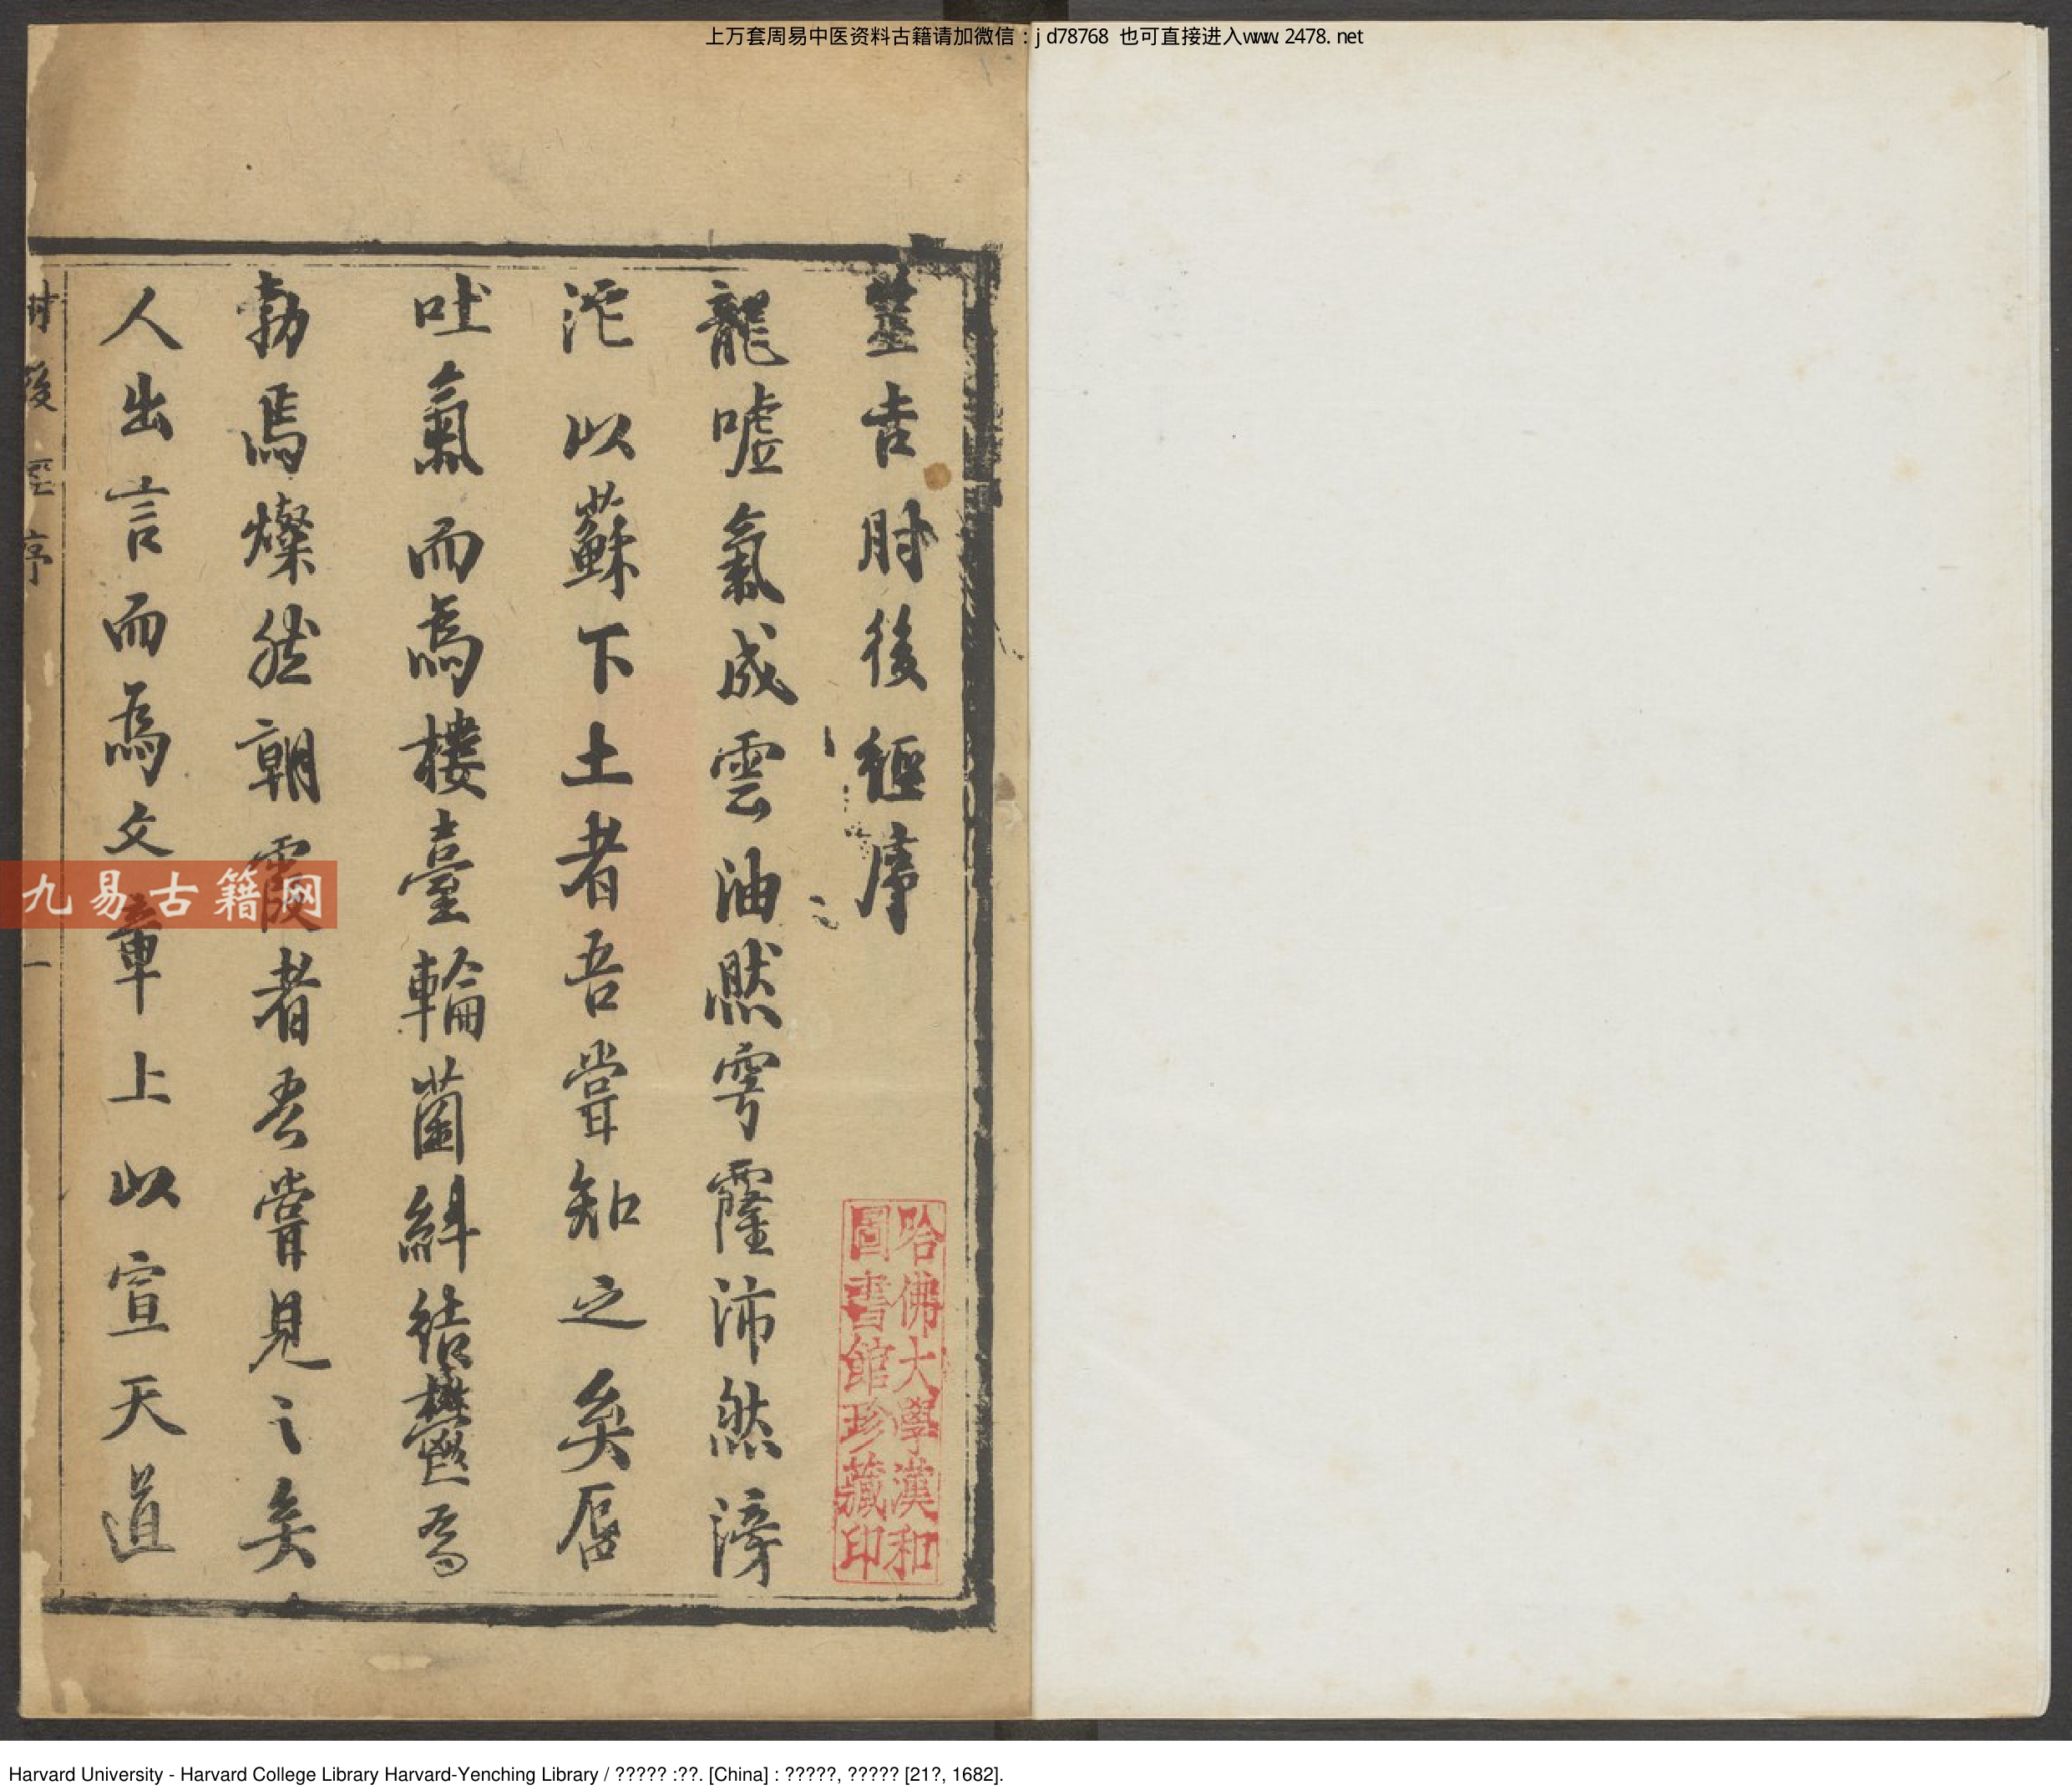 上万套周易中医资料古籍请加微信：jd78768 也可直接进入www.2478.net
葬吉肘後經序
龍噓氣成雲油然雱霳沛然滂
沱以蘇下土者吾嘗知之矣蜃
吐氣而爲樓臺輪菌糾結鬱焉
勃焉燦然朝霞者吾嘗見之矣
人出言而爲文章上以宣天道
肘後經序
一
哈佛大學漢和
圖書館珍藏印
九易古籍网
Harvard University - Harvard College Library Harvard-Yenching Library / ????? :??. [China] : ?????, ????? [21?, 1682].